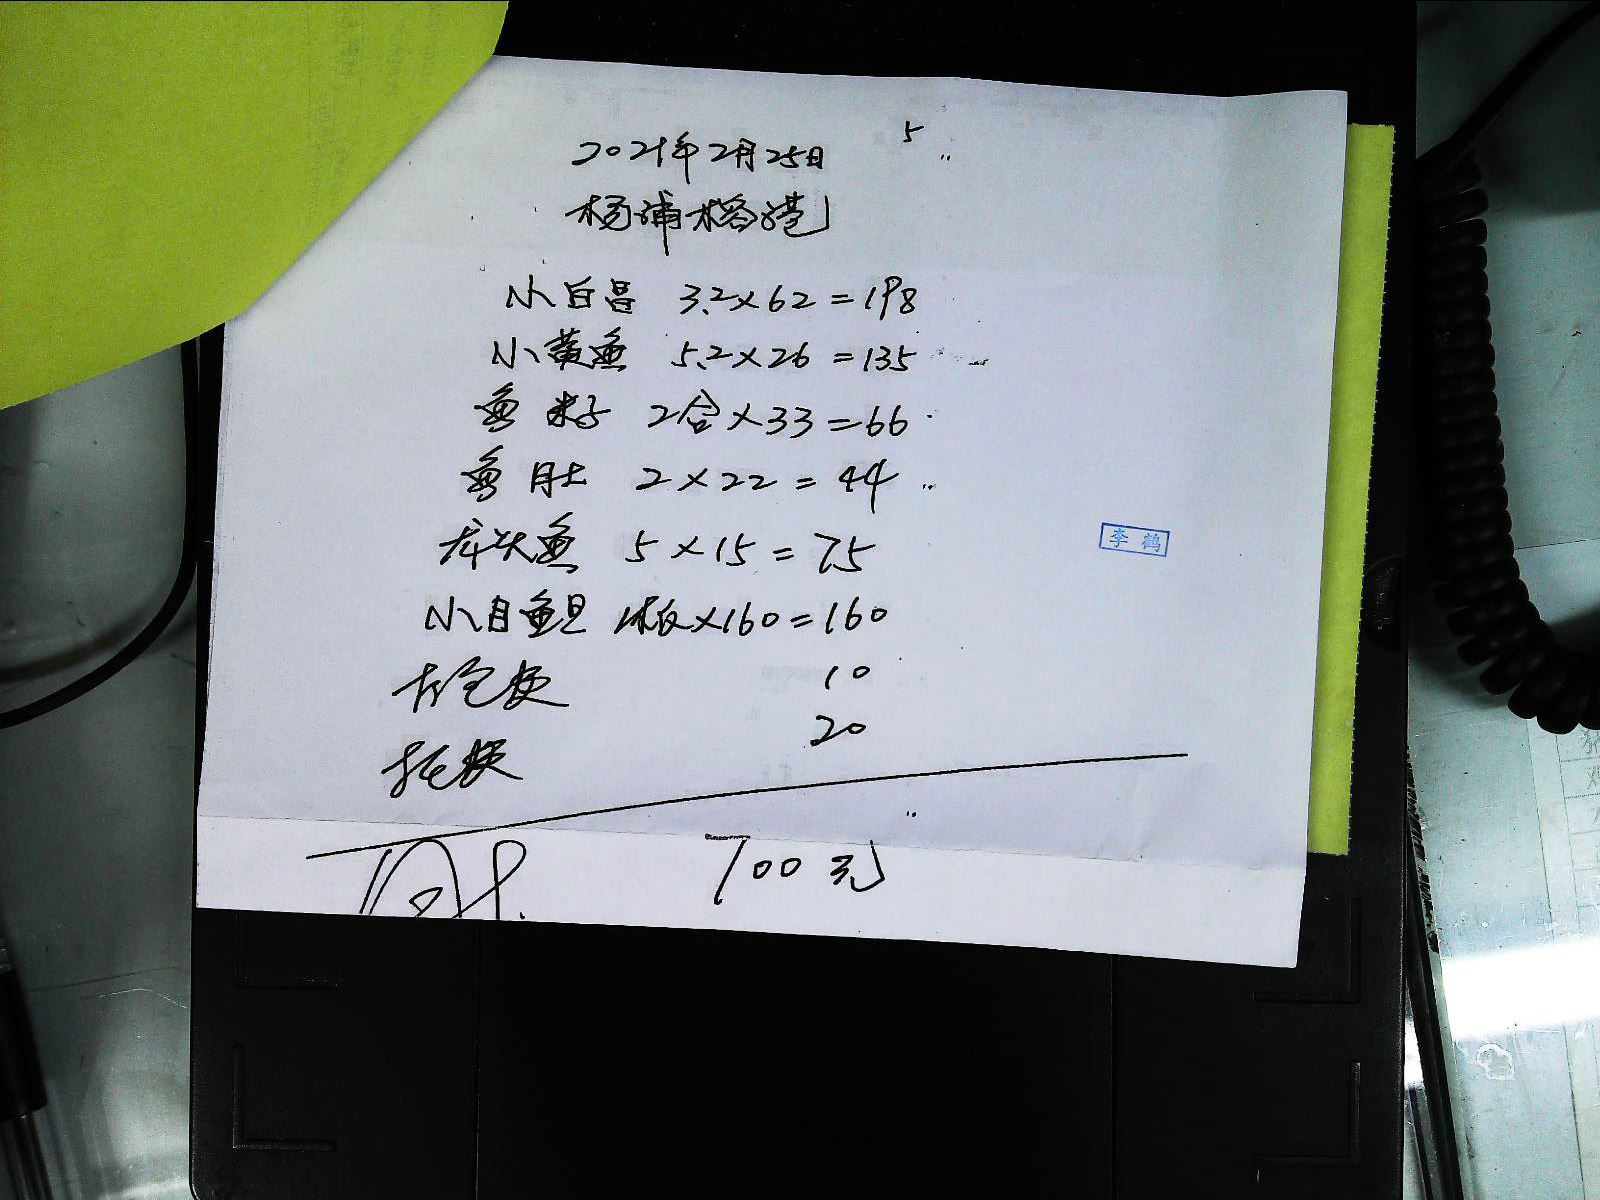 5
2021年2月25日
杨浦榴港
小白昌 3.2×62=198
小黄鱼 5.2×26=135
鱼籽 2合×33=66
鱼肚 2×22=44
龙头鱼 5×15=75
小目鱼旦 1板×160=160
李鹤
打包费 10
托费 20
700元